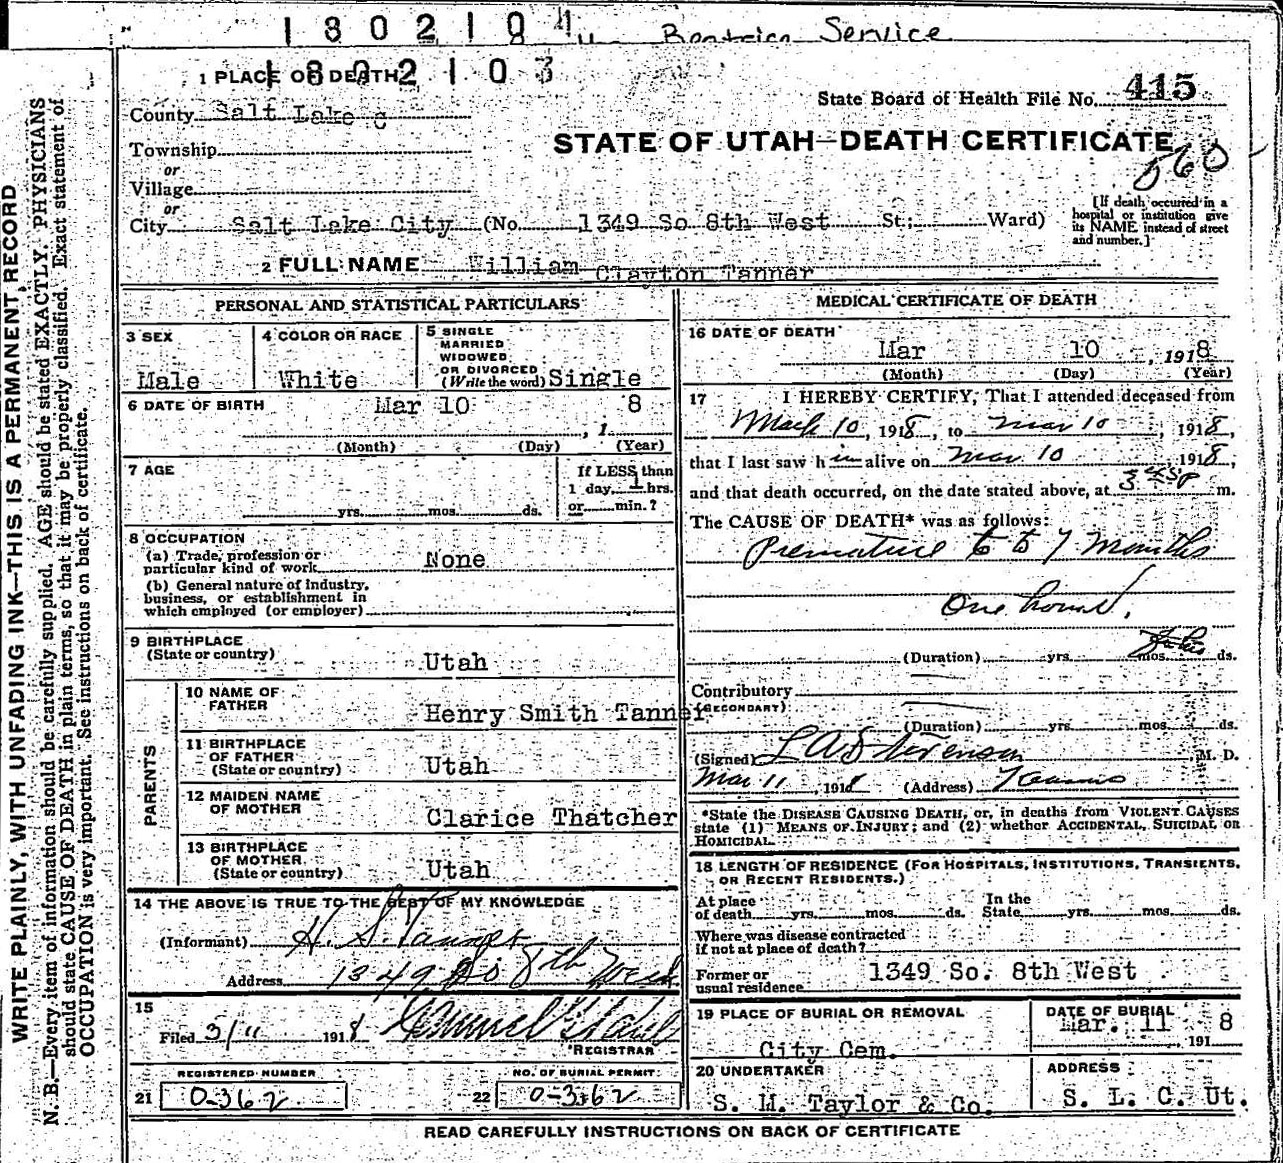 1802104
Beatrice Service
1802103
1 PLACE OF DEATH
County Salt Lake C
State Board of Health File No. 415
Township
STATE OF UTAH—DEATH CERTIFICATE
560
or
Village
or
City Salt Lake City (No. 1349 So 8th West St; Ward)
[If death occurred in a
hospital or institution give
its NAME instead of street
and number.]
2 FULL NAME William Clayton Tanner
PERSONAL AND STATISTICAL PARTICULARS
3 SEX
Male
4 COLOR OR RACE
White
5 SINGLE
MARRIED
WIDOWED
OR DIVORCED
(Write the word) Single
6 DATE OF BIRTH Mar 10 8
, 1
(Month) (Day) (Year)
7 AGE
yrs. mos. ds.
If LESS than
1 day, 1 hrs.
or min.?
8 OCCUPATION
(a) Trade, profession or
particular kind of work None
(b) General nature of industry,
business, or establishment in
which employed (or employer)
9 BIRTHPLACE
(State or country) Utah
PARENTS
10 NAME OF
FATHER Henry Smith Tanner
11 BIRTHPLACE
OF FATHER
(State or country) Utah
12 MAIDEN NAME
OF MOTHER Clarice Thatcher
13 BIRTHPLACE
OF MOTHER
(State or country) Utah
14 THE ABOVE IS TRUE TO THE BEST OF MY KNOWLEDGE
(Informant) H. S. Tanner
Address 1349 So 8th West
15
Filed 3/11 1918 Samuel
REGISTRAR
REGISTERED NUMBER
21 0-362
NO. OF BURIAL PERMIT
22 0-362
MEDICAL CERTIFICATE OF DEATH
16 DATE OF DEATH
Mar 10, 1918
(Month) (Day) (Year)
17 I HEREBY CERTIFY, That I attended deceased from
March 10, 1918, to Mar 10, 1918,
that I last saw him alive on Mar 10, 1918,
and that death occurred, on the date stated above, at 3 45 P m.
The CAUSE OF DEATH* was as follows:
Premature 6 to 7 months
One hour
(Duration) yrs. mos. ds.
Contributory
(SECONDARY)
(Duration) yrs. mos. ds.
(Signed) L A Stevenson, M. D.
Mar 11, 1918 (Address)
*State the DISEASE CAUSING DEATH, or, in deaths from VIOLENT CAUSES
state (1) MEANS OF INJURY; and (2) whether ACCIDENTAL, SUICIDAL OR
HOMICIDAL.
18 LENGTH OF RESIDENCE (FOR HOSPITALS, INSTITUTIONS, TRANSIENTS,
OR RECENT RESIDENTS.)
At place
of death yrs. mos. ds.
In the
State yrs. mos. ds.
Where was disease contracted
if not at place of death?
Former or
usual residence 1349 So. 8th West
19 PLACE OF BURIAL OR REMOVAL
City Cem.
DATE OF BURIAL
Mar. 11 8
, 191
20 UNDERTAKER
S. M. Taylor & Co.
ADDRESS
S. L. C. Ut.
READ CAREFULLY INSTRUCTIONS ON BACK OF CERTIFICATE
WRITE PLAINLY, WITH UNFADING INK—THIS IS A PERMANENT RECORD
N. B.—Every item of information should be carefully supplied. AGE should be stated EXACTLY. PHYSICIANS
should state CAUSE OF DEATH in plain terms, so that it may be properly classified. Exact statement of
OCCUPATION is very important. See instructions on back of certificate.